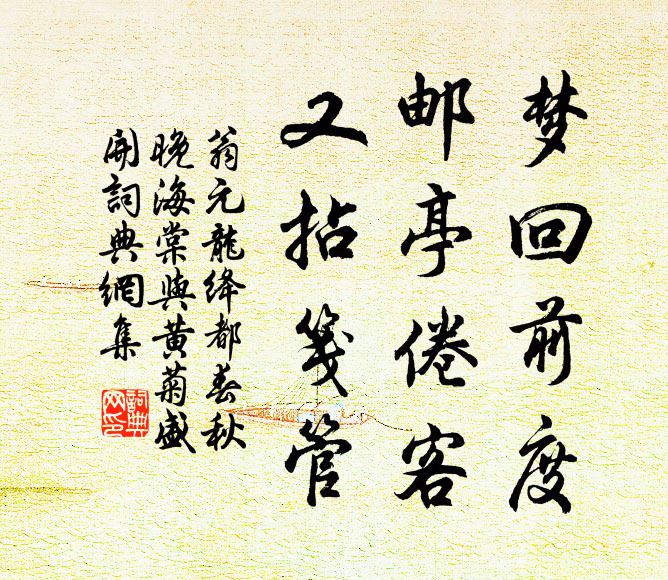 梦回前度
邮亭倦客
又拈笺管
翁元龍绛都春秋
晚海棠與黄菊盛
開詞典網集
詞典
网印